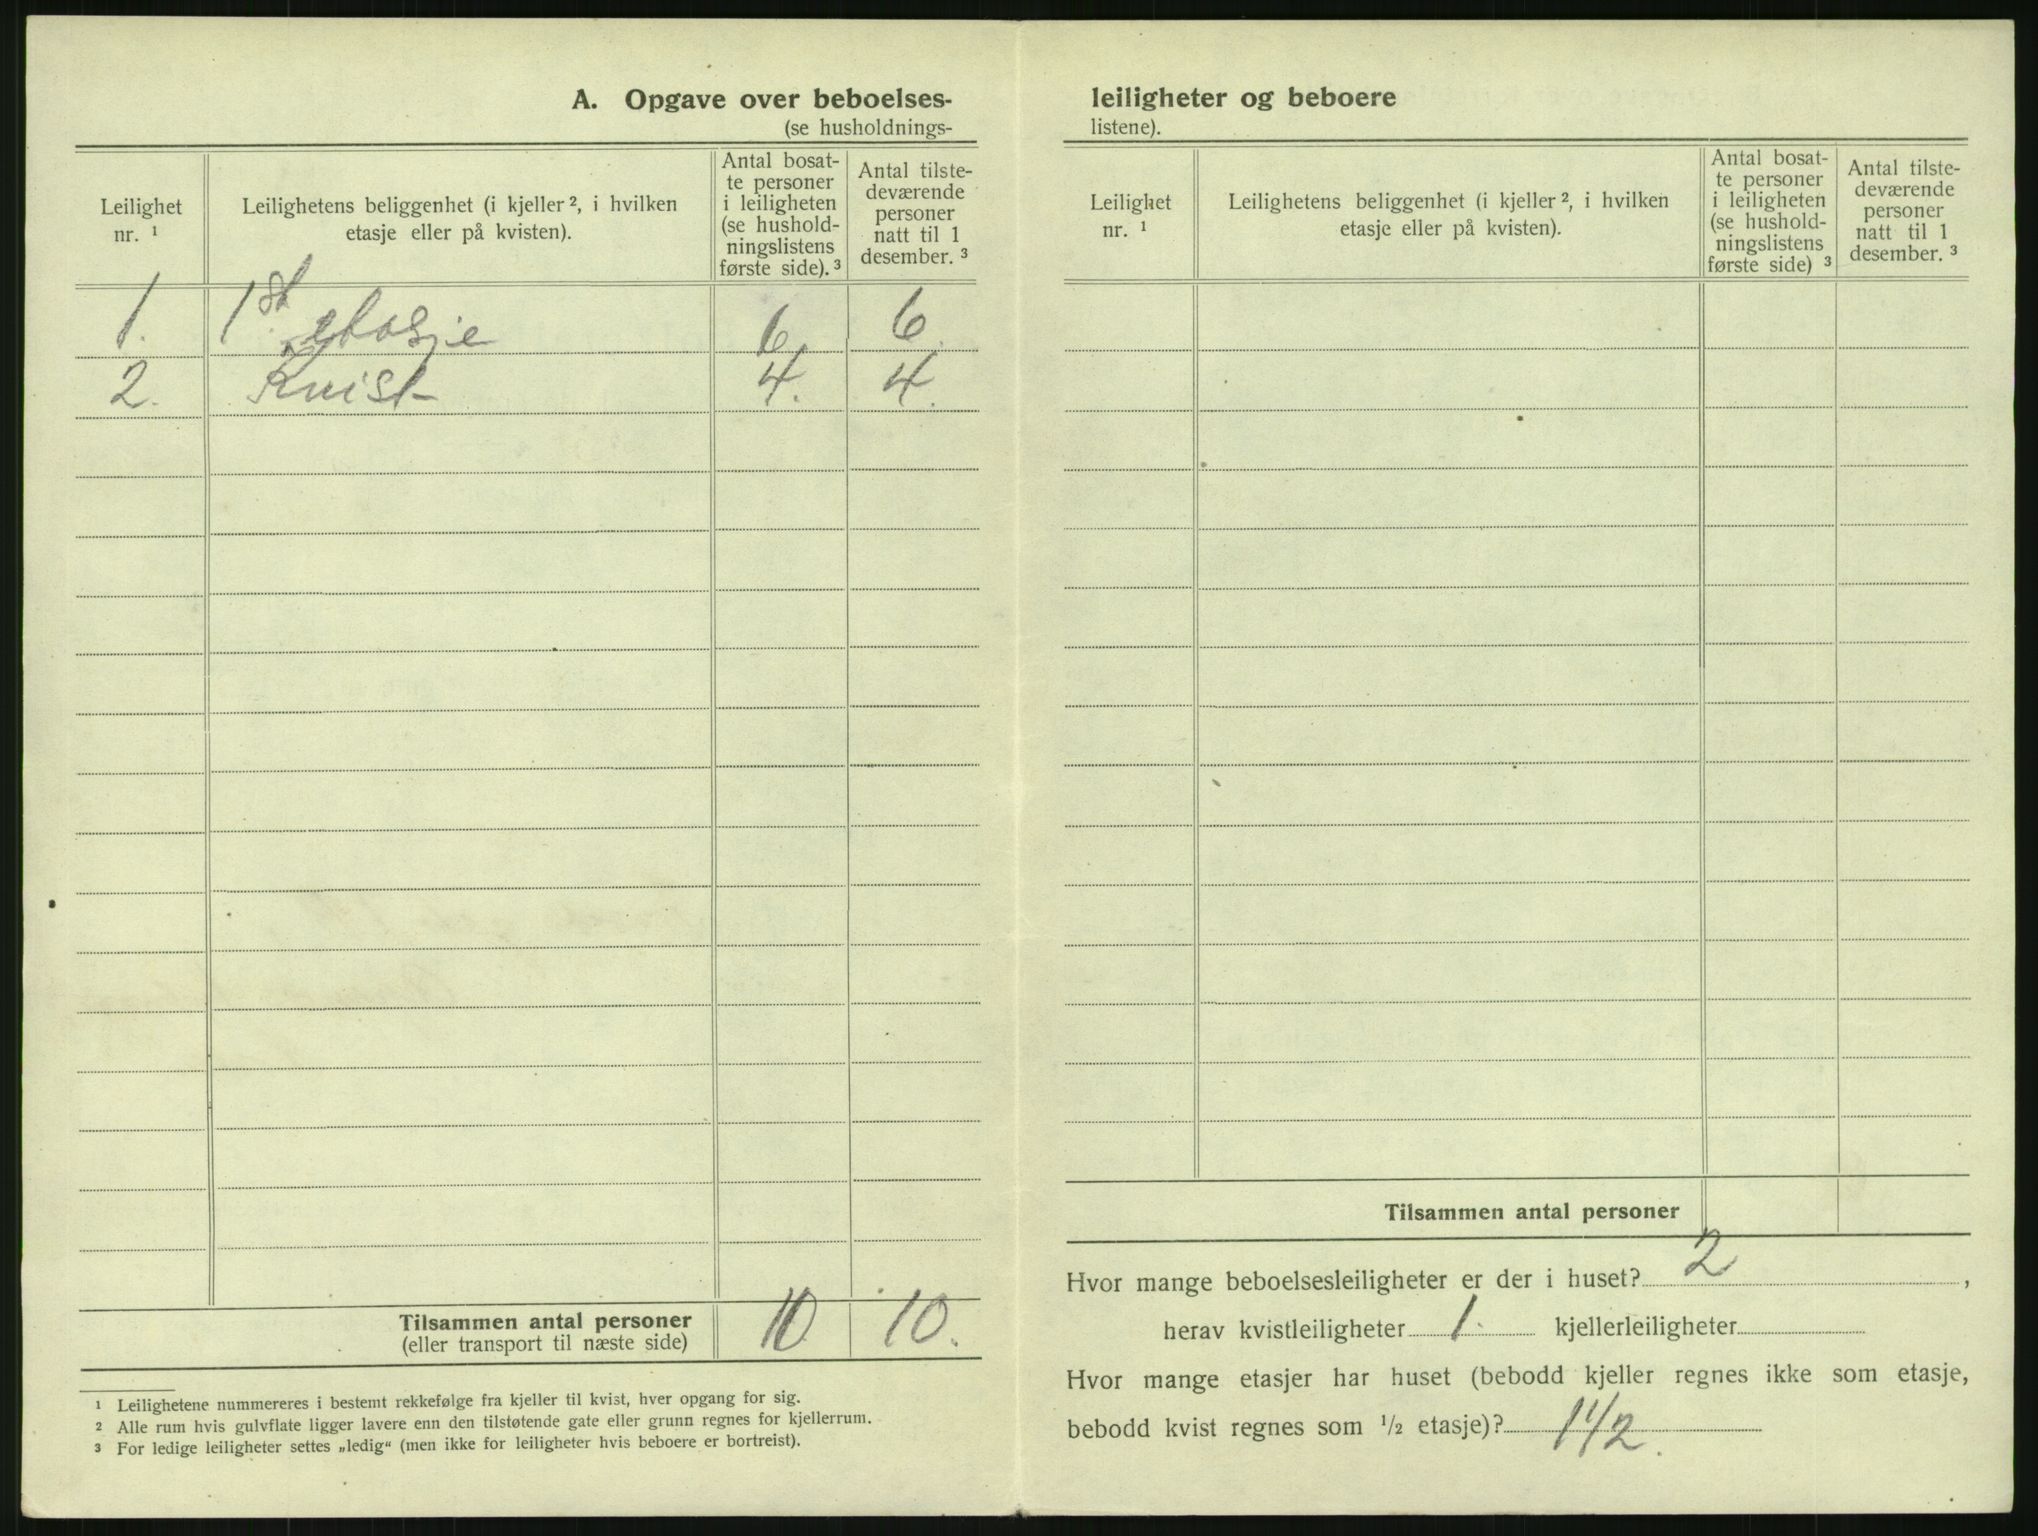 A. Opgave over beboelses-
(se husholdnings-
Leilighet
nr. 1
Leilighetens beliggenhet (i kjeller 2, i hvilken
etasje eller på kvisten).
Antal bosat-
te personer
i leiligheten
(se hushold-
ningslistens
første side). 3
Antal tilste-
deværende
personer
natt til 1
desember. 3
1. 1st etasje 6 6.
2. Kvist 4. 4.
Tilsammen antal personer
(eller transport til næste side)
10 10.
1 Leilighetene nummereres i bestemt rekkefølge fra kjeller til kvist, hver opgang for sig.
2 Alle rum hvis gulvflate ligger lavere enn den tilstøtende gate eller grunn regnes for kjellerrum.
3 For ledige leiligheter settes „ledig“ (men ikke for leiligheter hvis beboere er bortreist).
leiligheter og beboere
listene).
Leilighet
nr. 1
Leilighetens beliggenhet (i kjeller 2, i hvilken
etasje eller på kvisten).
Antal bosat-
te personer
i leiligheten
(se hushold-
ningslistens
første side) 3
Antal tilste-
deværende
personer
natt til 1
desember. 3
Tilsammen antal personer
Hvor mange beboelsesleiligheter er der i huset? 2,
herav kvistleiligheter 1. kjellerleiligheter
Hvor mange etasjer har huset (bebodd kjeller regnes ikke som etasje,
bebodd kvist regnes som 1/2 etasje)? 1 1/2.